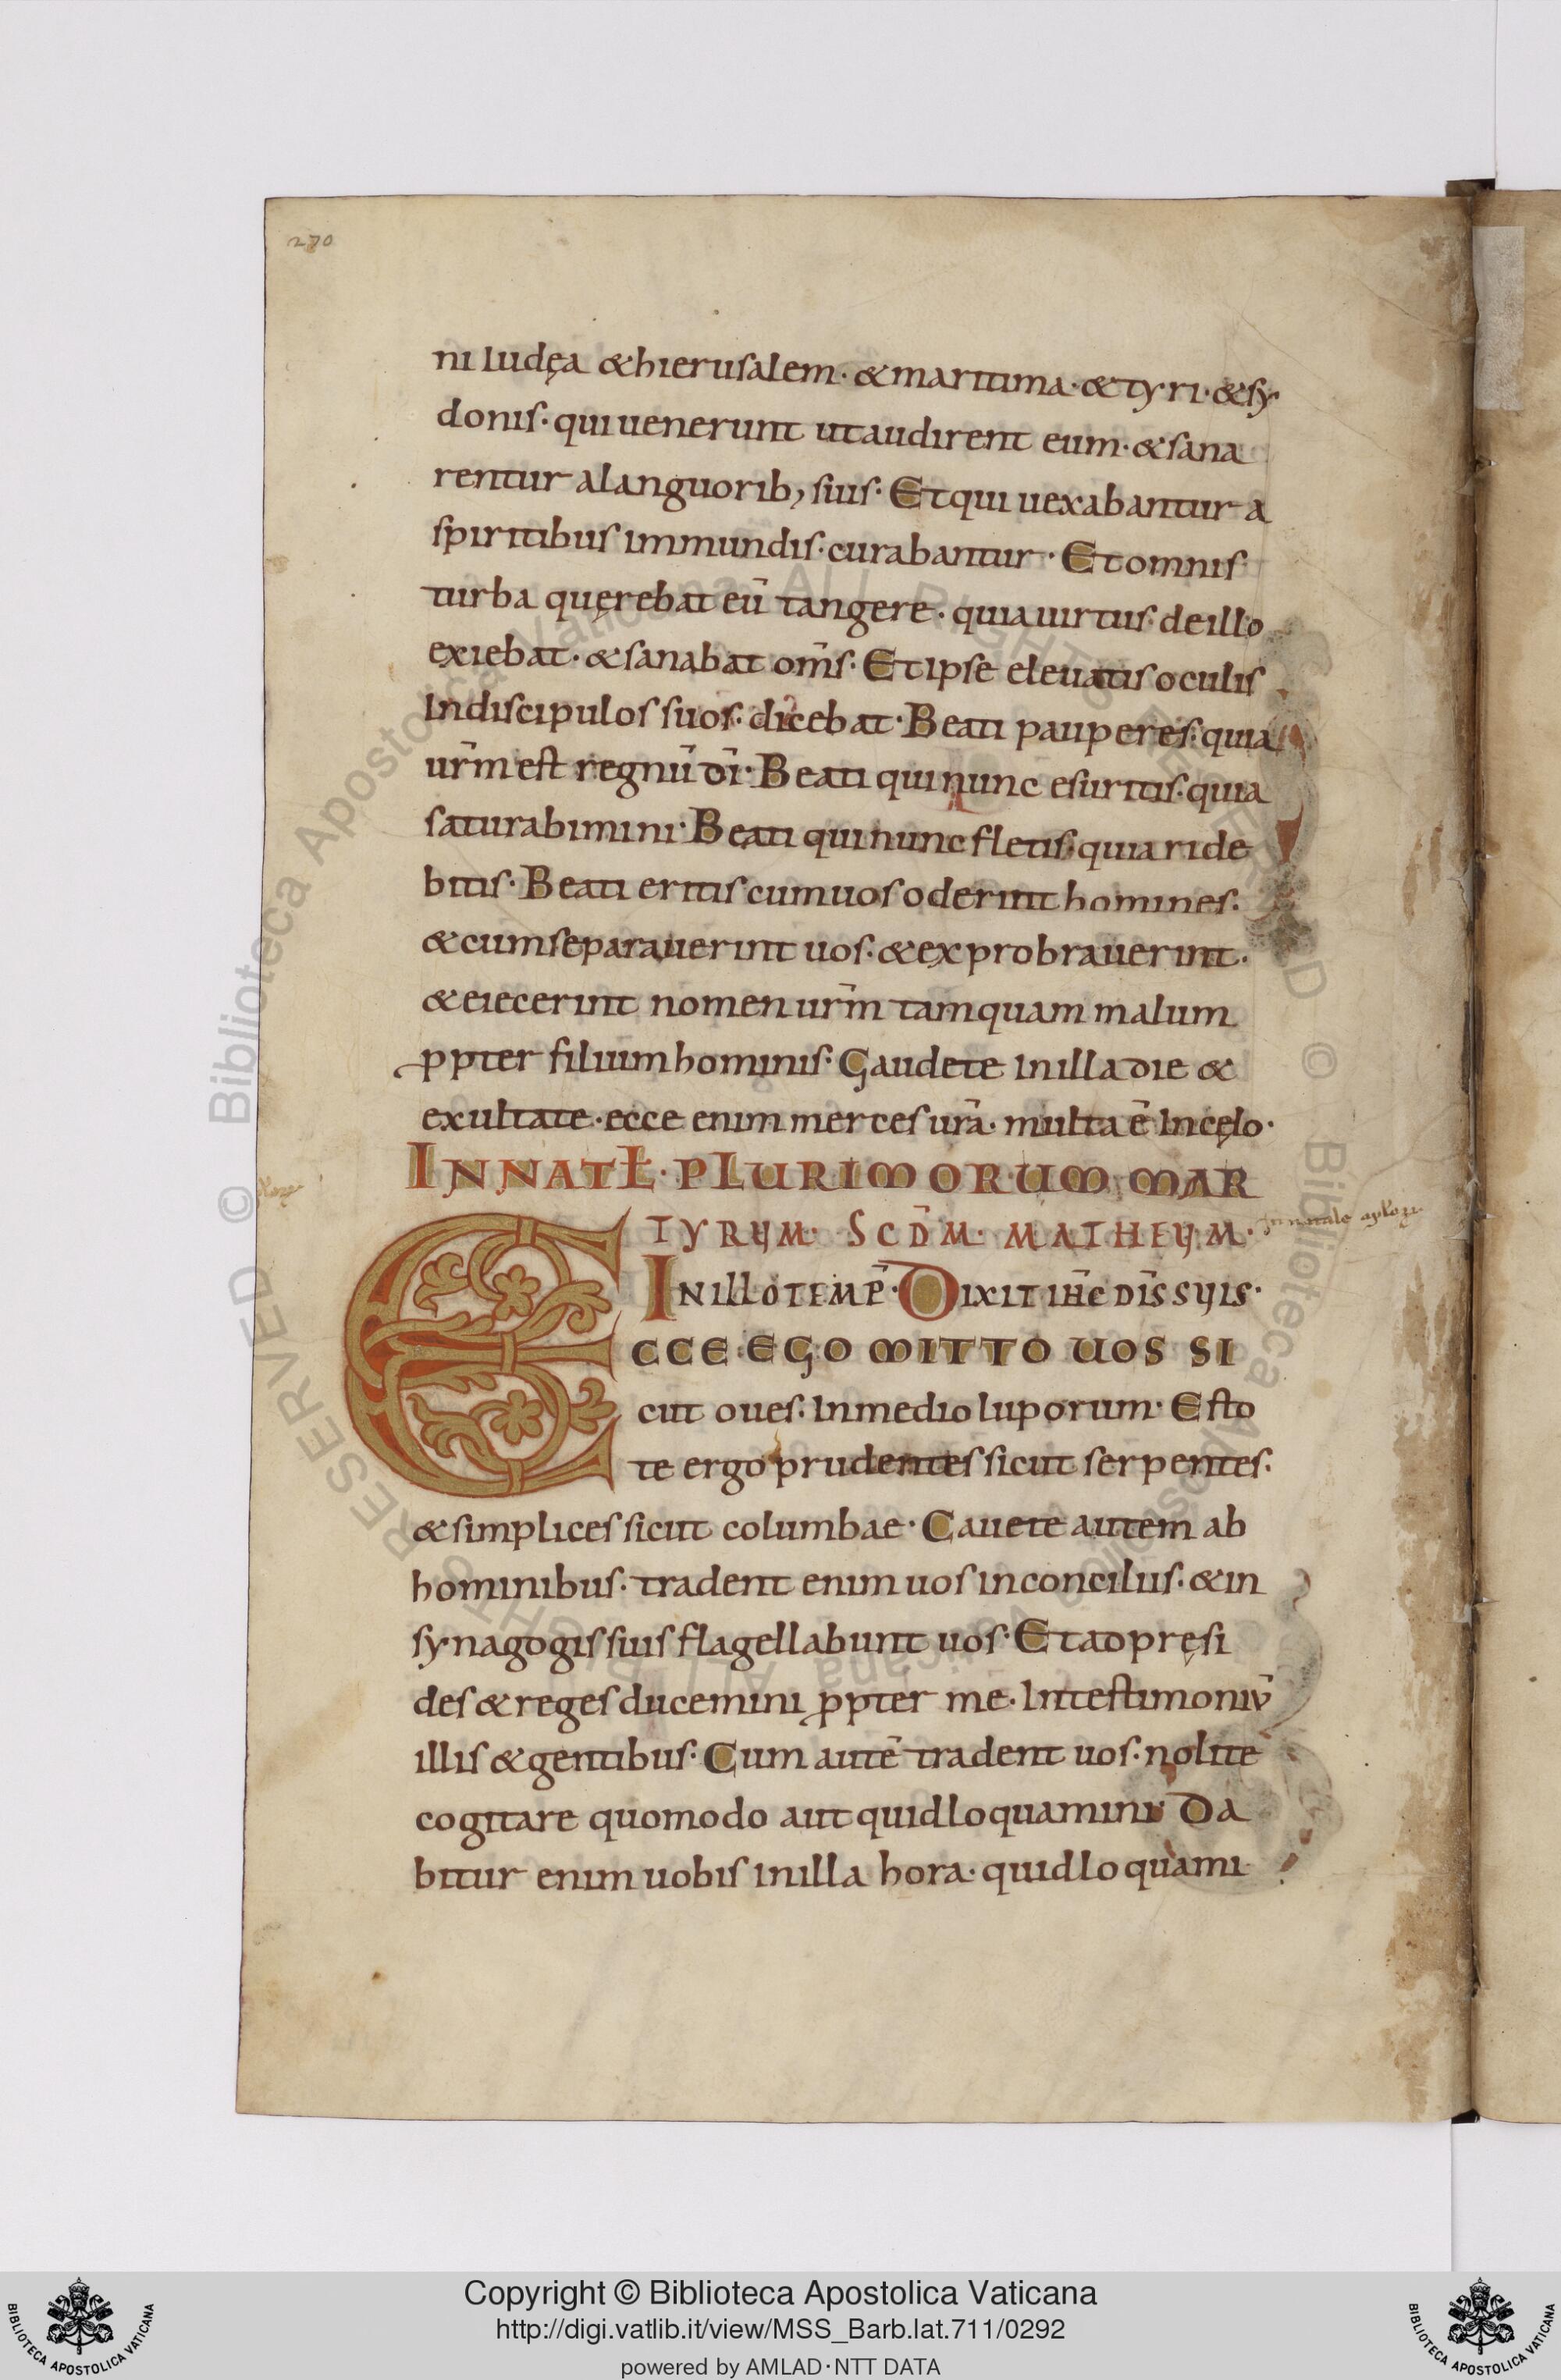 270
ni iudęa & hierusalem· & maritima· & tyri· & sy
donis· qui uenerunt ut audirent eum· & sana
rentur a languorib; suis· Et qui uexabantur a
spiritibus immundis· curabantur· Et omnis
turba quęrebat eū tangere· quia uirtus de illo
exiebat· & sanabat om̄s· Et ipse eleuatis oculis
In discipulos suos· dicebat· Beati pauperes· quia
ur̄m est regnū dī· Beati qui nunc esuritis· quia
saturabimini· Beati qui nunc fletis· quia ride
bitis· Beati eritis cum uos oderint homines·
& cum separauerint uos· & exprobrauerint·
& eiecerint nomen ur̄m tamquam malum
ꝓpter filium hominis· Gaudete in illa die &
exultate· ecce enim merces ur̄a· multa ē In cęlo·
IN NATƗ· PLURIMORUM MAR
TYRUM· SCD̄M· MATHEUM· In natale aplo℞
IN ILLO TEMP̄· DIXIT IH̄C DIS̄ SUIS·
ECCE EGO MITTO UOS SI
cut oues· In medio luporum· Esto
te ergo prudentes sicut serpentes·
& simplices sicut columbae· Cauete autem ab
hominibus· tradent enim uos in conciliis· & in
synagogis suis flagellabunt uos· Et ad pręsi
des & reges ducemini ꝓpter me· In testimoniū
illis & gentibus· Cum autē tradent uos· nolite
cogitare quomodo aut quid loquamini· Da
bitur enim uobis in illa hora· quid loquami
© Biblioteca Apostolica Vaticana ALL RIGHTS RESERVED © Biblioteca Apostolica Vaticana ALL RIGHTS RESERVED
Copyright © Biblioteca Apostolica Vaticana
http://digi.vatlib.it/view/MSS_Barb.lat.711/0292
powered by AMLAD·NTT DATA
BIBLIOTECA APOSTOLICA VATICANA
BIBLIOTECA APOSTOLICA VATICANA